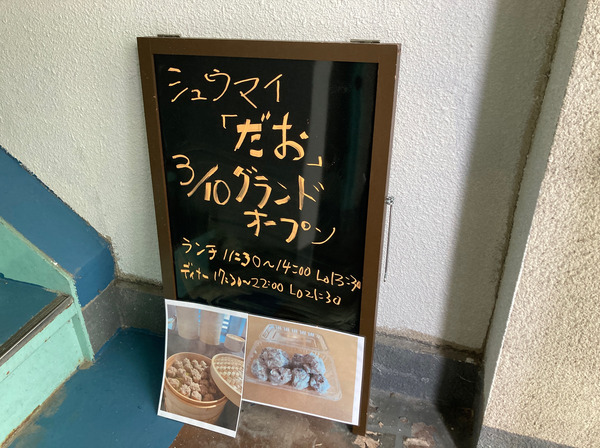 シュウマイ
「だお」
3/10グランド
オープン
ランチ 11:30〜14:00 Lo13:30
ディナー 17:30〜22:00 Lo21:30